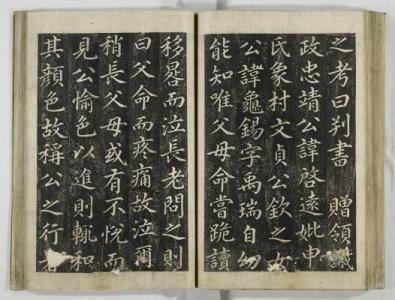 之考曰判書 贈領議
政忠靖公諱啓遠妣申
氏象村文貞公欽之女
公諱龜錫字禹瑞自幼
能知唯父母命嘗跪讀
移晷而泣長老問之則
曰父命而疼痛故泣爾
稍長父母或有不悅而
見公愉色以進則輒和
其顔色故稱公之行者